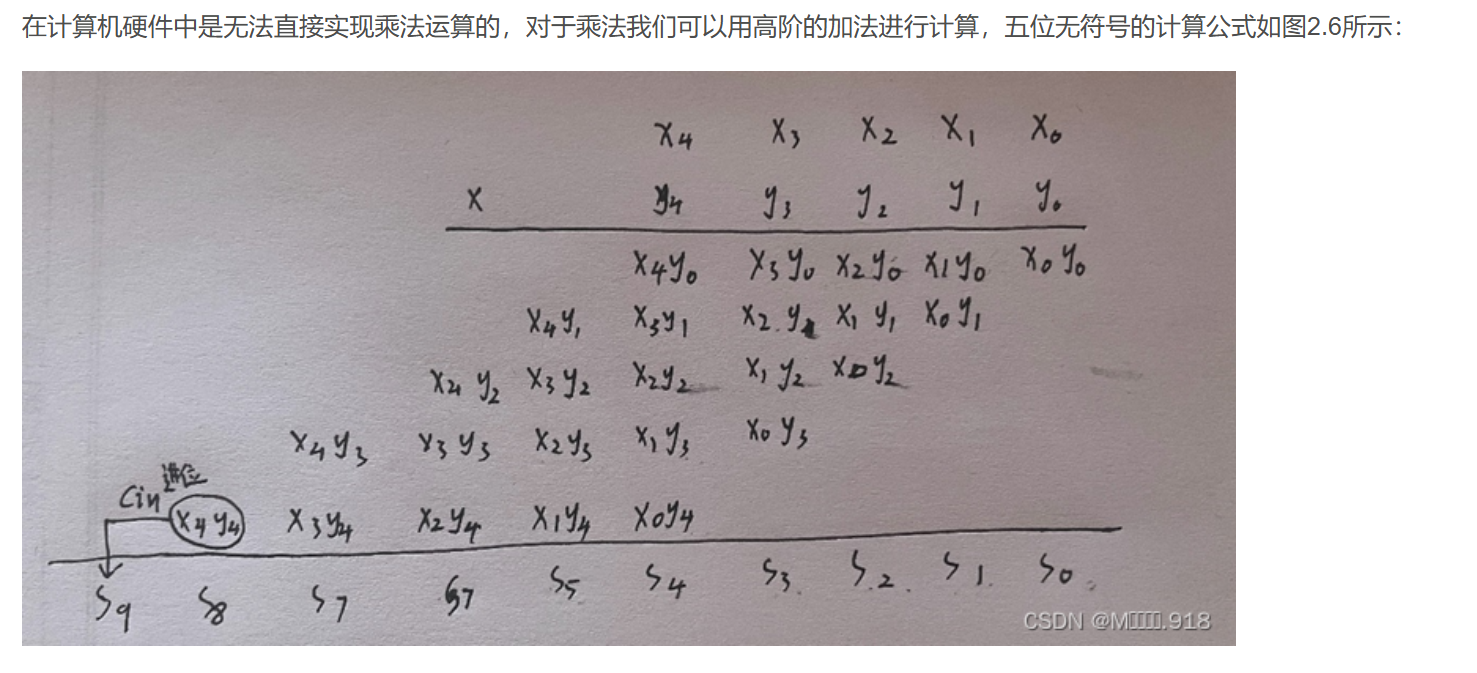 在计算机硬件中是无法直接实现乘法运算的，对于乘法我们可以用高阶的加法进行计算，五位无符号的计算公式如图2.6所示：
x4 x3 x2 x1 x0
x y4 y3 y2 y1 y0
x4y0 x3y0 x2y0 x1y0 x0y0
x4y1 x3y1 x2y1 x1y1 x0y1
x4y2 x3y2 x2y2 x1y2 x0y2
x4y3 x3y3 x2y3 x1y3 x0y3
Cin 进位
x4y4 x3y4 x2y4 x1y4 x0y4
S9 S8 S7 S7 S5 S4 S3 S2 S1 S0
CSDN @M.918